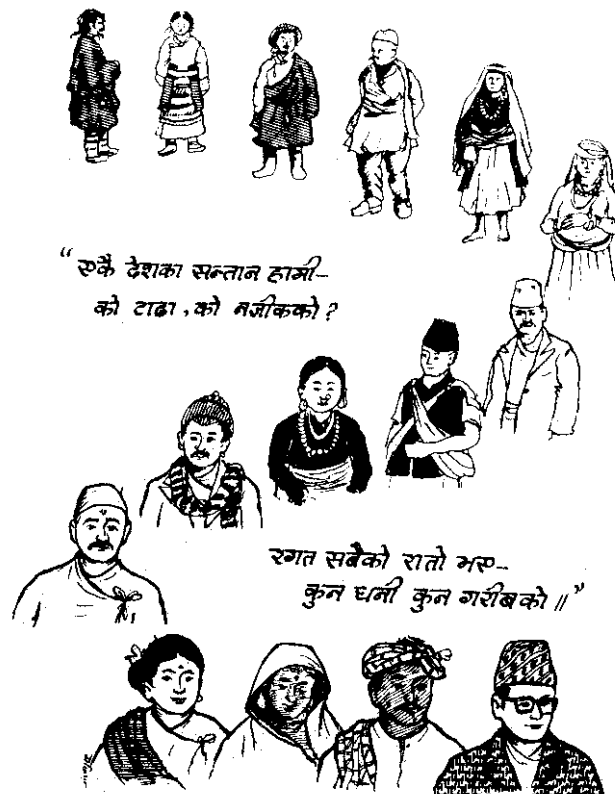 “एकै देशका सन्तान हामी–
को टाढा, को नजीकको?
रगत सबैको रातो भए–
कुन धनी कुन गरीबको॥”